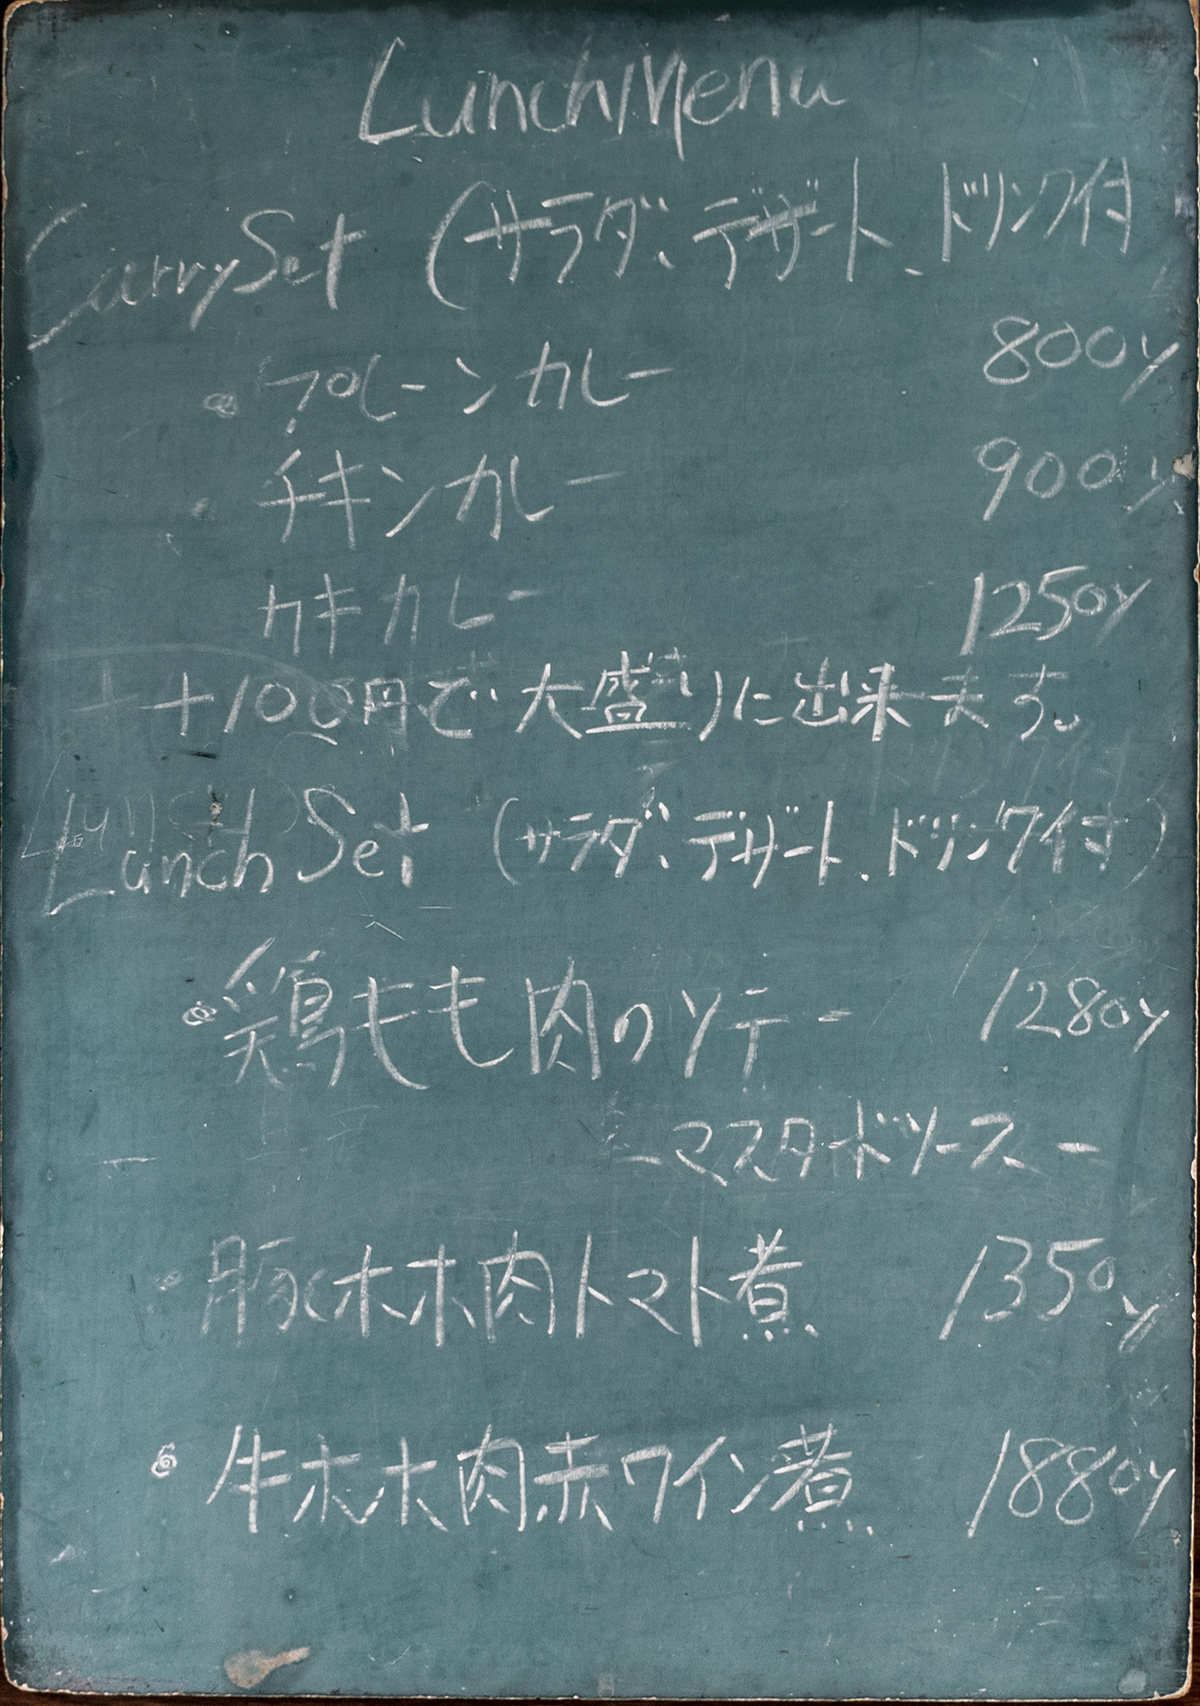 Lunch Menu
Curry Set (サラダ、デザート、ドリンク付
・プレーンカレー 800y
・チキンカレー 900y
カキカレー 1250y
+100円で大盛りに出来ます。
Lunch Set (サラダ、デザート、ドリンク付)
・鶏もも肉のソテー 1280y
ーマスタードソースー
・豚ホホ肉トマト煮 1350y
・牛ホホ肉赤ワイン煮 1880y